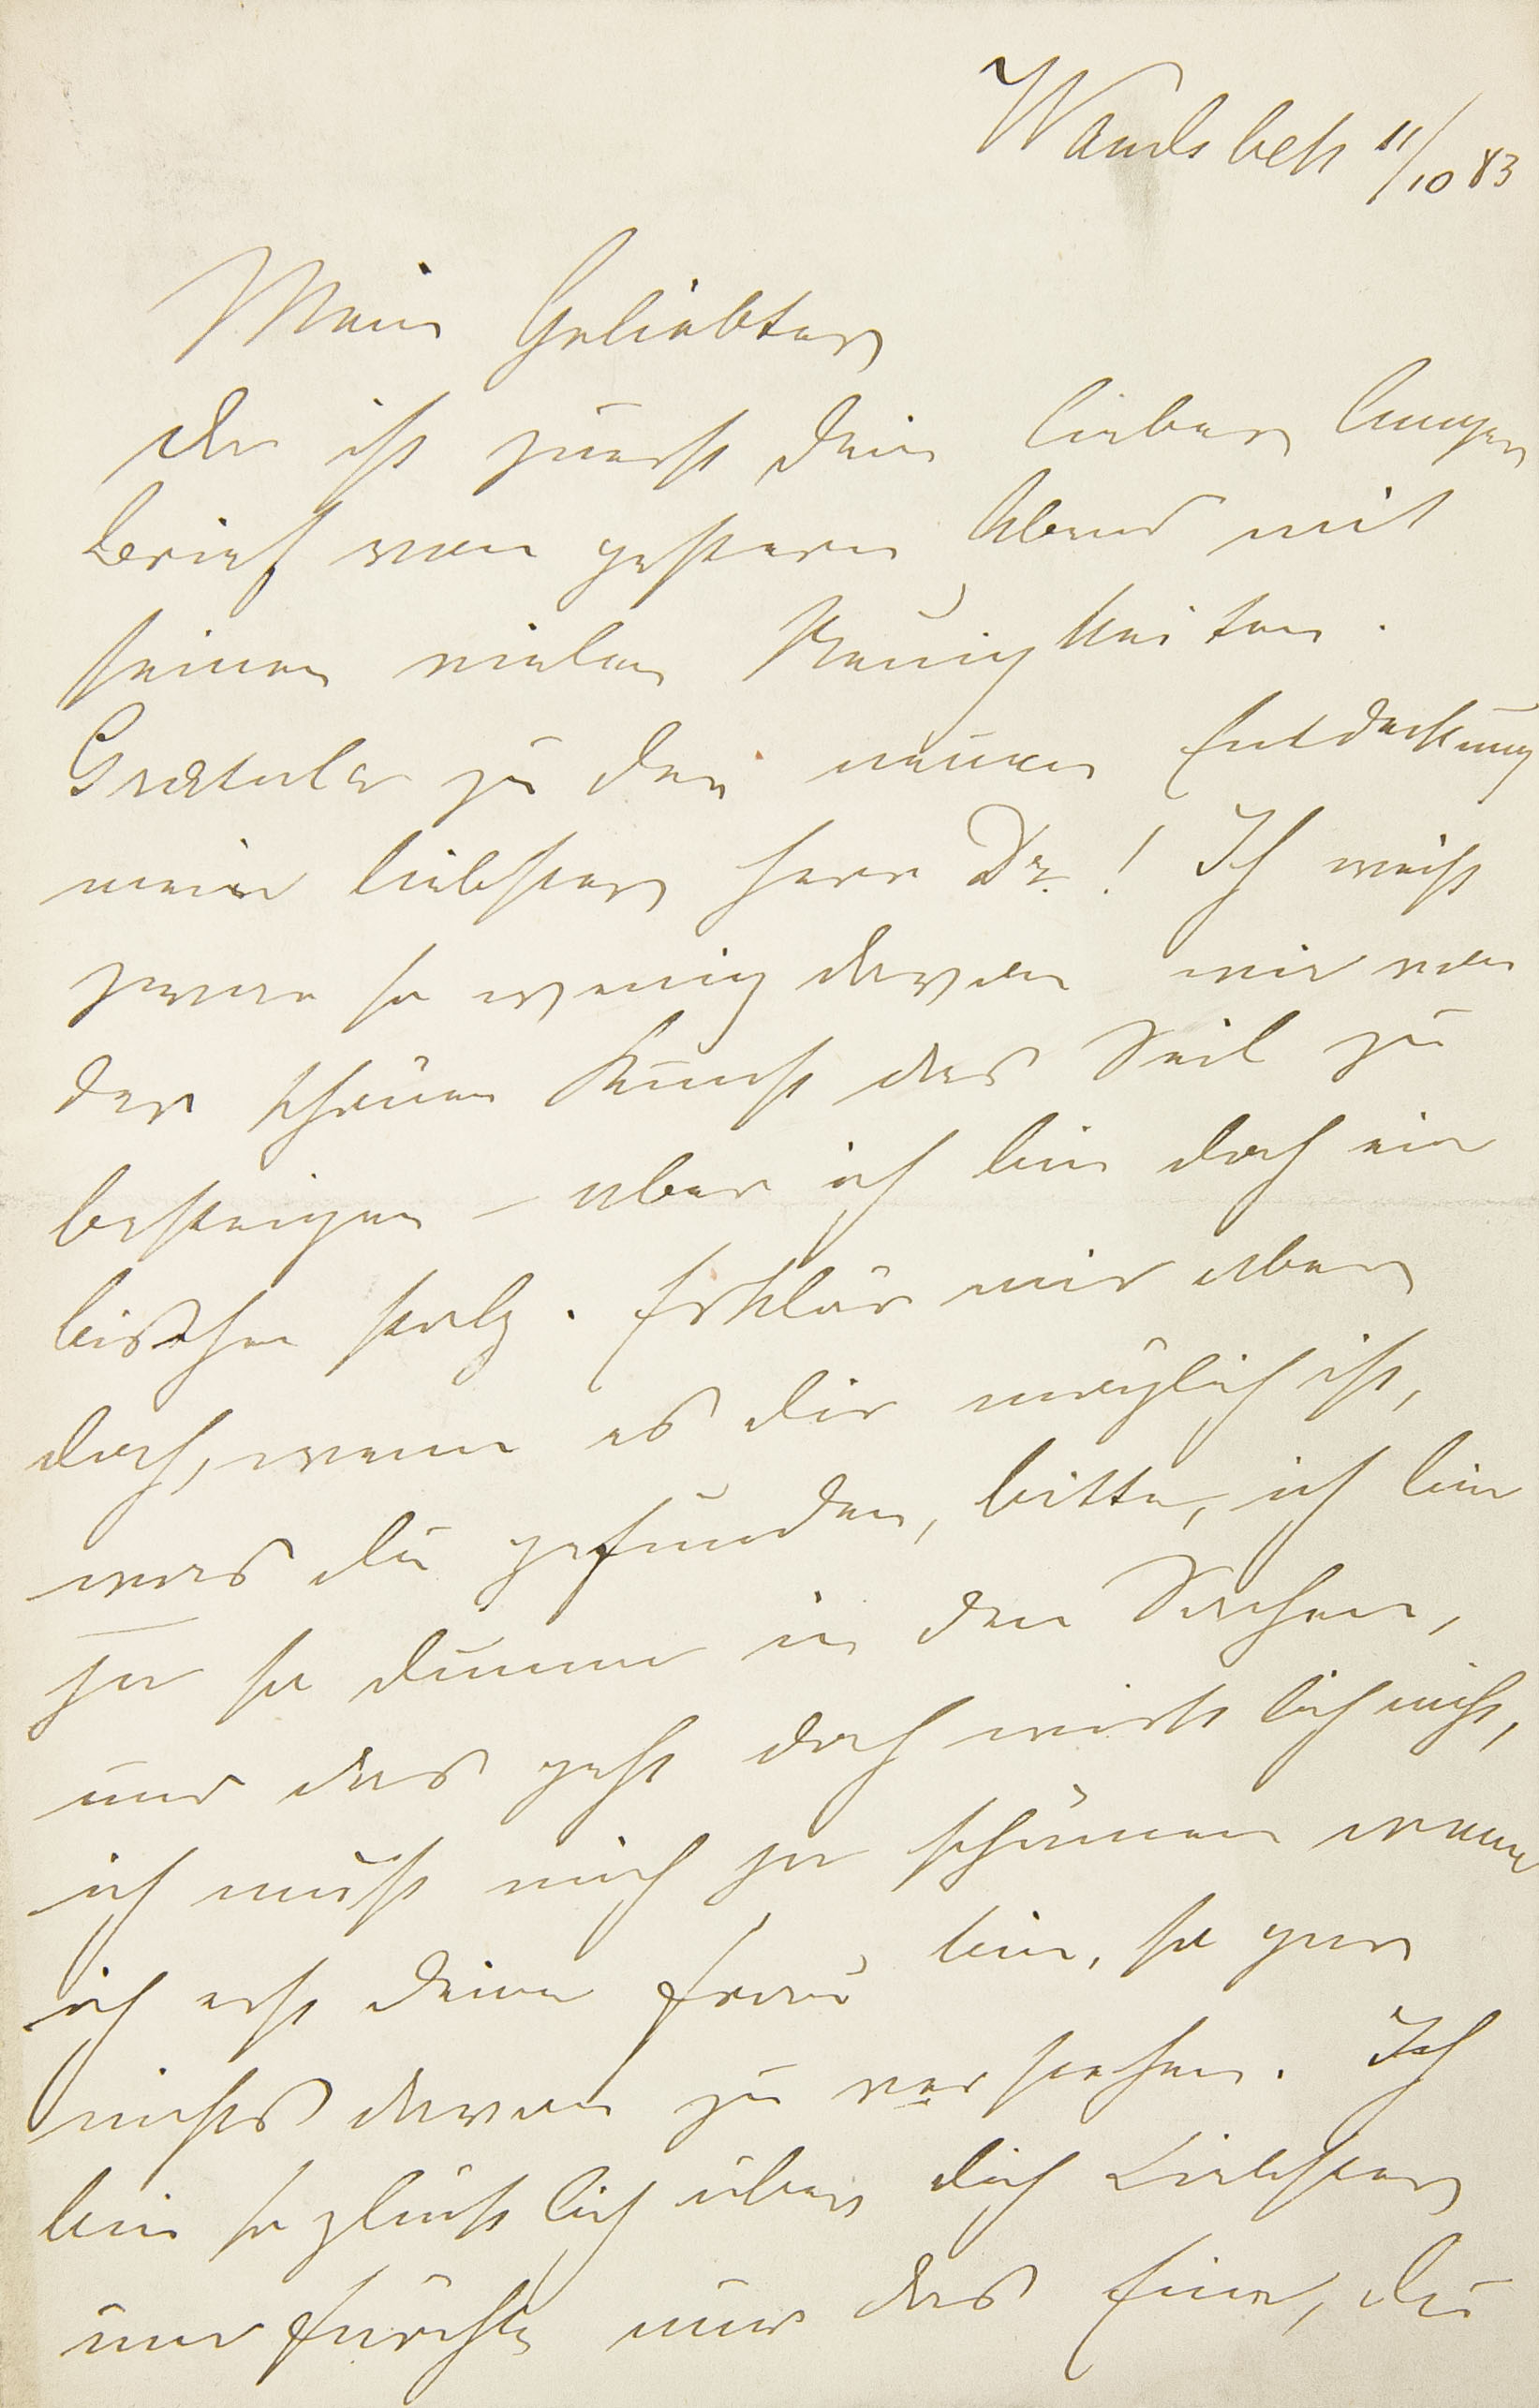 Wandsbek 11/10 83
Mein Geliebter
da ist zuerst Dein lieber langer
Brief von gestern Abend mit
seinen vielen Neuigkeiten.
Gratuliere zu der neuen Entdeckung
mein liebster Herr Dr.! Ich weiß
zwar so wenig davon wie von
der schönen Kunst das Seil zu
besteigen – aber ich bin doch ein
bischen stolz. Erklär mir aber
doch, wenn es Dir möglich ist,
was Du gefunden, bitte, ich bin
ja so dumm in den Sachen,
und das geht doch wirklich nicht,
ich muß mich ja schämen wenn
ich erst Deine Frau bin, so gar
nichts davon zu verstehen. Ich
bin so glücklich über Dich Liebster
und fürchte nur das Eine, Du